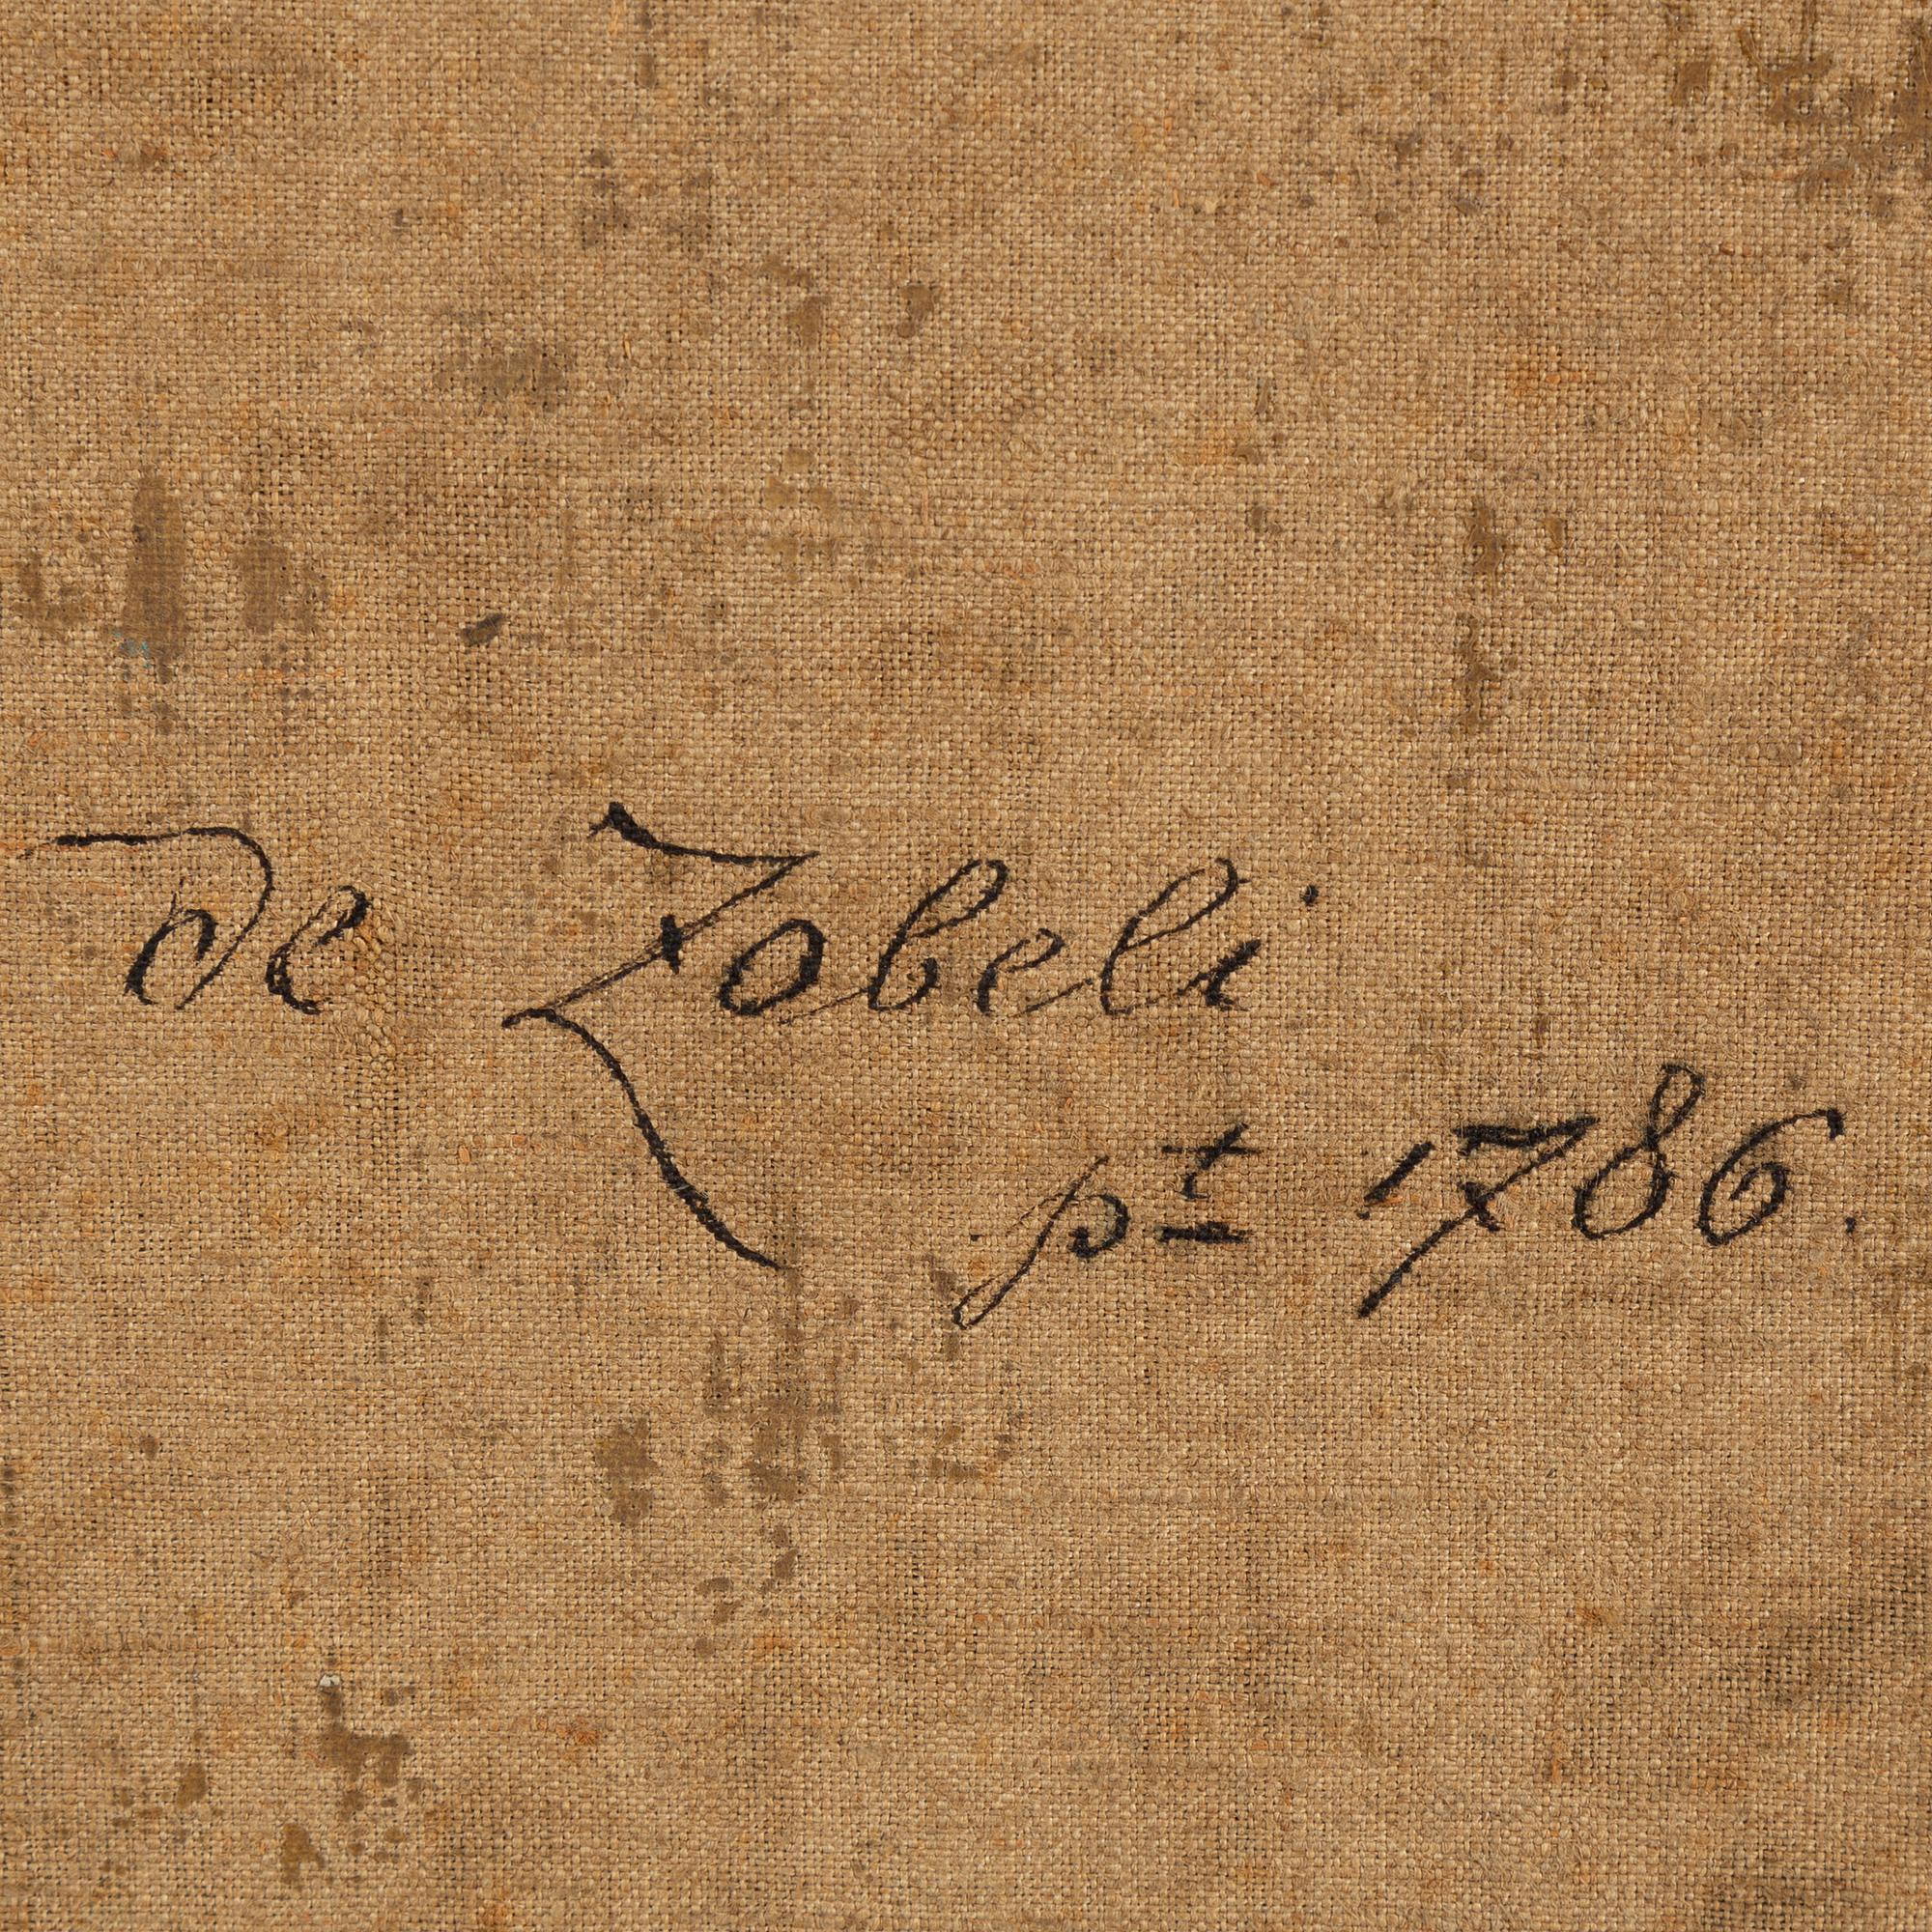 De Zobeli
pt 1786.